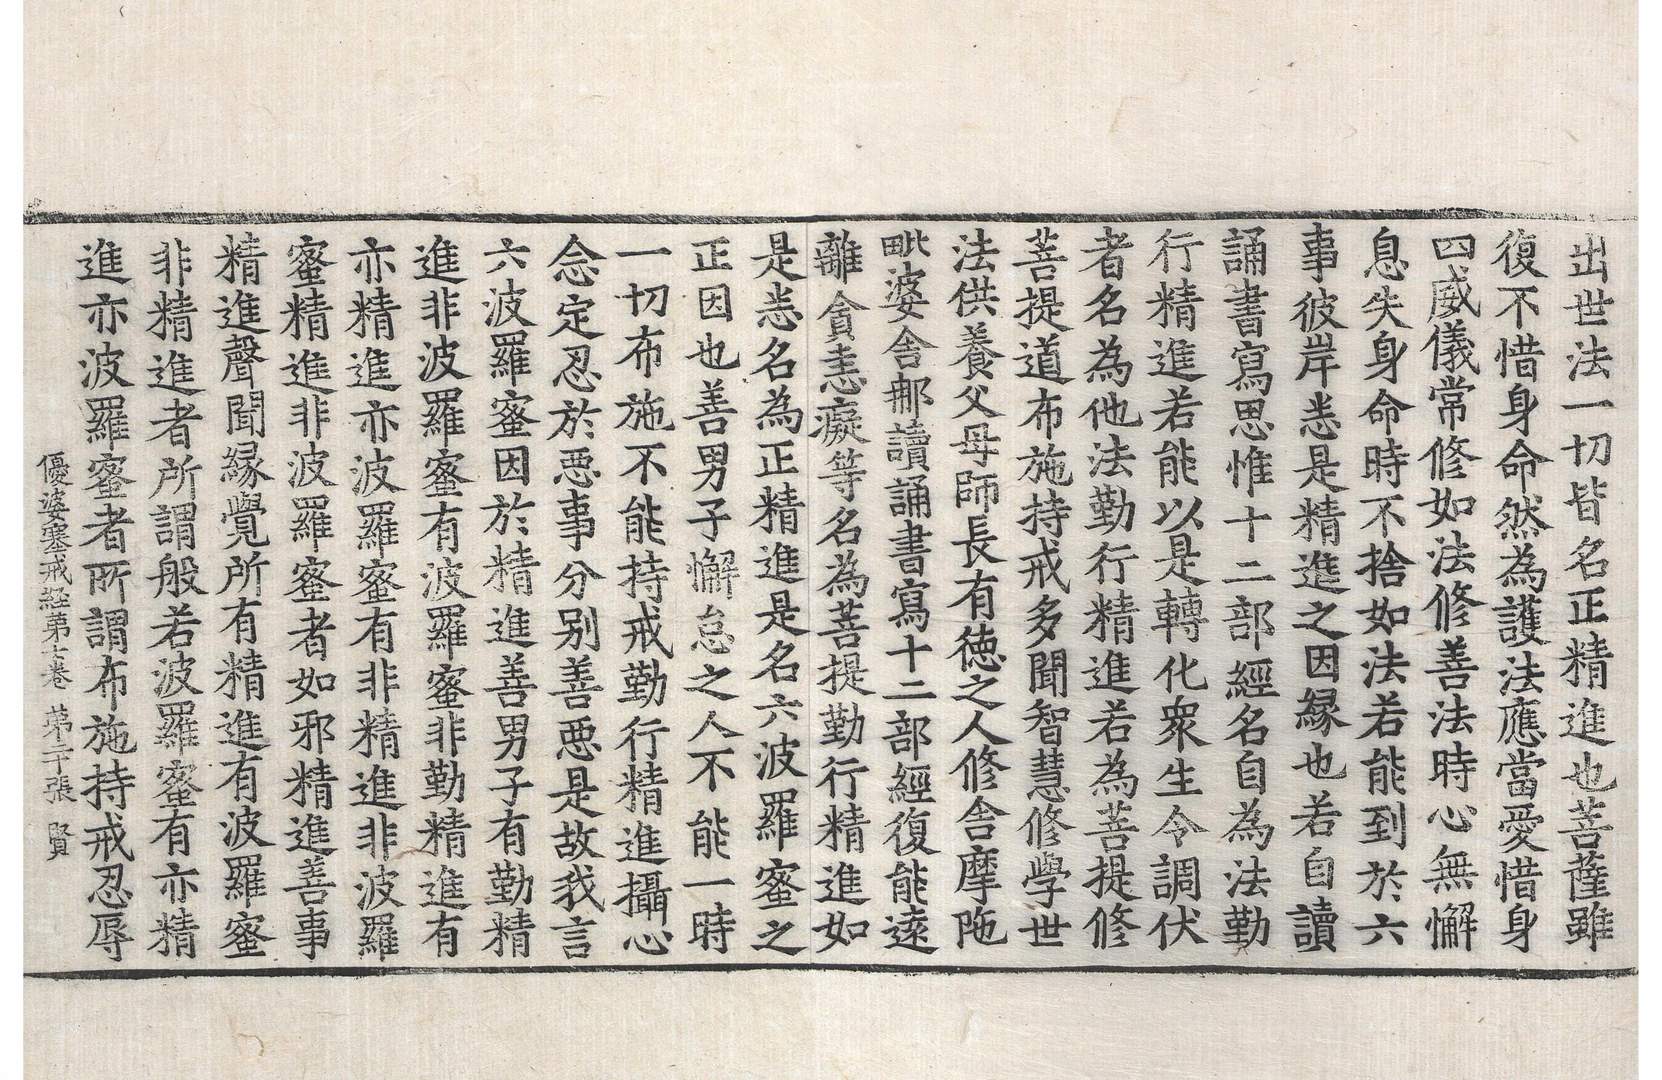 出世法一切皆名正精進也菩薩雖
復不惜身命然為護法應當愛惜身
四威儀常修如法修善法時心無懈
息失身命時不捨如法若能到於六
事彼岸悉是精進之因縁也若自讀
誦書寫思惟十二部經名自為法勤
行精進若能以是轉化衆生令調伏
者名為他法勤行精進若為菩提修
菩提道布施持戒多聞智慧修學世
法供養父母師長有徳之人修舍摩陁
毗婆舍那讀誦書寫十二部經復能遠
離貪恚癡等名為菩提勤行精進如
是悉名為正精進是名六波羅蜜之
正因也善男子懈怠之人不能一時
一切布施不能持戒勤行精進攝心
念定忍於惡事分別善惡是故我言
六波羅蜜因於精進善男子有勤精
進非波羅蜜有波羅蜜非勤精進有
亦精進亦波羅蜜有非精進非波羅
蜜精進非波羅蜜者如邪精進善事
精進聲聞縁覺所有精進有波羅蜜
非精進者所謂般若波羅蜜有亦精
進亦波羅蜜者所謂布施持戒忍辱
優婆塞戒経第七卷 第二十張 賢